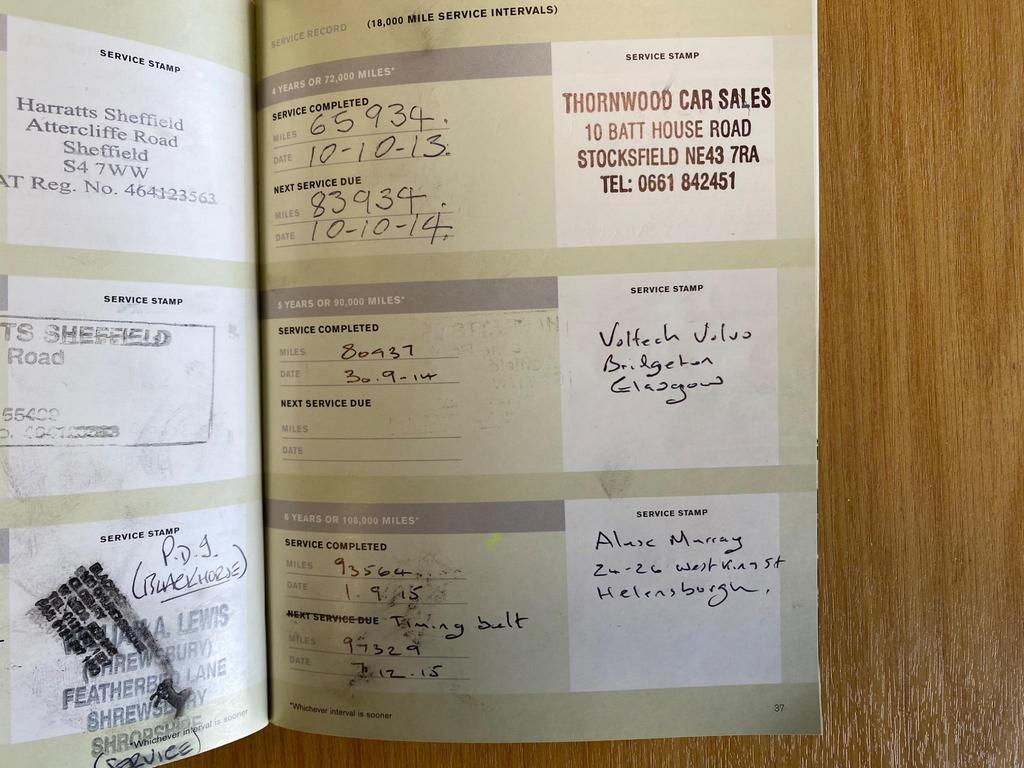 SERVICE STAMP
Harratts Sheffield
Attercliffe Road
Sheffield
S4 7WW
AT Reg. No. 464123563
SERVICE STAMP
TS SHEFFIELD
Road
SERVICE STAMP
P.D.I.
(BLACKHORSE)
A. LEWIS
(SHREWSBURY)
FEATHERBED LANE
SHREWSBURY
SHROPSHIRE
*Whichever interval is sooner
(SERVICE)
SERVICE RECORD (18,000 MILE SERVICE INTERVALS)
4 YEARS OR 72,000 MILES*
SERVICE COMPLETED
MILES 65934.
DATE 10-10-13.
NEXT SERVICE DUE
MILES 83934.
DATE 10-10-14.
SERVICE STAMP
THORNWOOD CAR SALES
10 BATT HOUSE ROAD
STOCKSFIELD NE43 7RA
TEL: 0661 842451
5 YEARS OR 90,000 MILES*
SERVICE COMPLETED
MILES 80937
DATE 30.9-14
NEXT SERVICE DUE
MILES
DATE
SERVICE STAMP
Voltech Volvo
Bridgeton
Glasgow
6 YEARS OR 108,000 MILES*
SERVICE COMPLETED
MILES 93564
DATE 1.9.15
NEXT SERVICE DUE Timing belt
MILES 97329
DATE 7.12.15
SERVICE STAMP
Murray
24-26 West King St
Helensburgh.
*Whichever interval is sooner
37